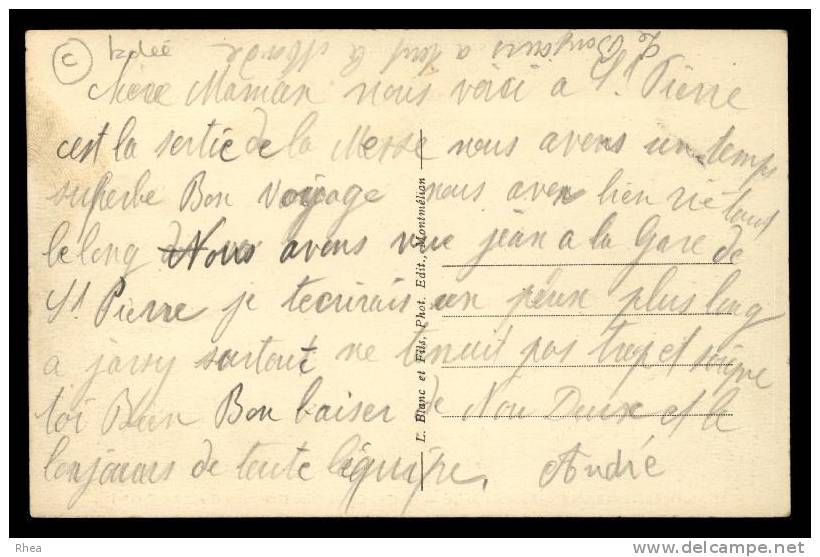 Le Bonjours a tout le Monde
Chère Maman nous voici a St Pierre
cest la sortie de la Messe nous avons un temps
superbe Bon voyage nous avon bien rie tout
le long Nous avons vue jean a la Gare de
St Pierre je tecrirais un peux plus long
a jarsy surtout ne tenuit pas trop et soigne
toi Bien Bon baiser de Nou Deux et le
bonjours de toute léquipe. André
E. Blanc et Fils, Phot. Edit., Montmélian
C
Rhea
www.delcampe.net